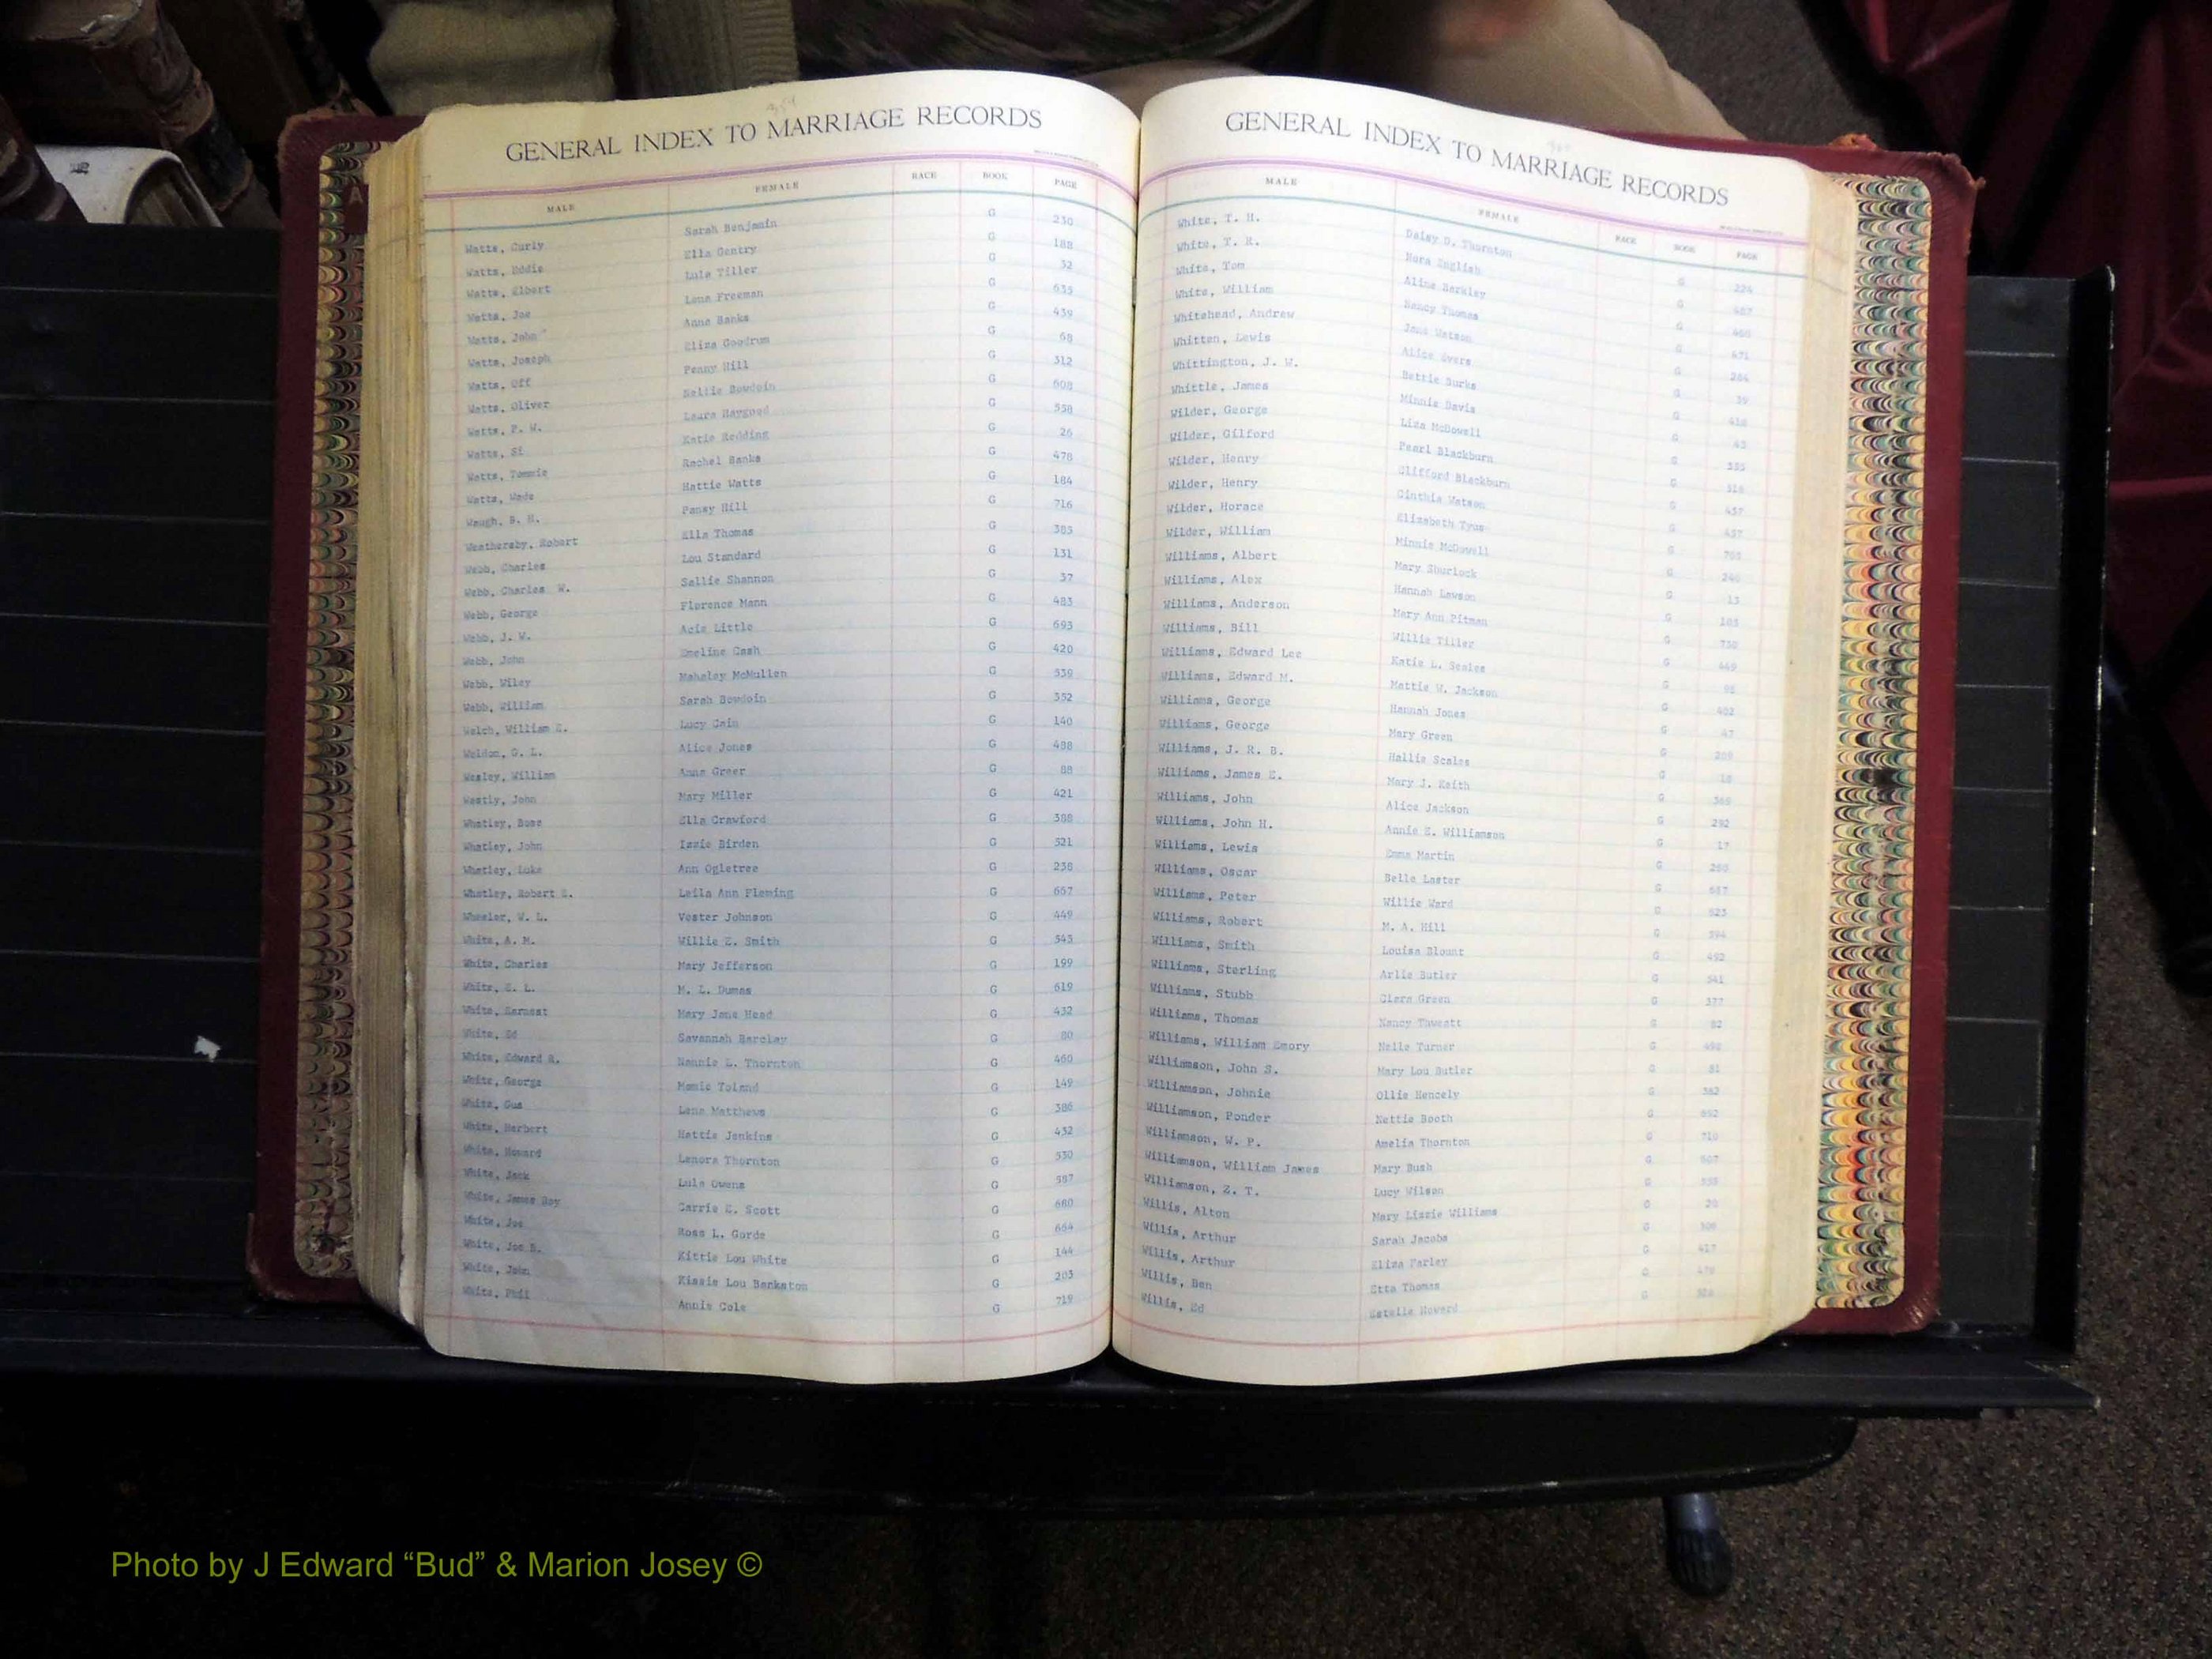 GENERAL INDEX TO MARRIAGE RECORDS
MALE FEMALE RACE BOOK PAGE
Watts, Curly Sarah Benjamin G 230
Watts, Eddie Ella Gentry G 188
Watts, Elbert Lula Tiller G 32
Watts, Joe Lena Freeman G 635
Watts, John Anna Banks G 439
Watts, Joseph Eliza Goodrum G 68
Watts, Off Penny Hill G 312
Watts, Oliver Nellie Bowdoin G 608
Watts, P. W. Laura Haygood G 558
Watts, Si Katie Redding G 26
Watts, Tommie Rachel Banks G 478
Watts, Wade Hattie Watts G 184
Waugh, B. H. Pansy Hill G 716
Weathersby, Robert Ella Thomas G 385
Webb, Charles Lou Standard G 131
Webb, Charles W. Sallie Shannon G 37
Webb, George Florence Mann G 483
Webb, J. W. Acie Little G 693
Webb, John Emeline Cash G 420
Webb, Wiley Mahaley McMullen G 539
Webb, William Sarah Bowdoin G 352
Welch, William E. Lucy Cain G 140
Weldon, G. L. Alice Jones G 498
Wesley, William Anna Greer G 88
Westly, John Mary Miller G 421
Whatley, Bose Ella Crawford G 388
Whatley, John Izzie Birden G 321
Whatley, Luke Ann Ogletree G 238
Whatley, Robert E. Leila Ann Fleming G 667
Wheeler, W. L. Vester Johnson G 449
White, A. M. Willie Z. Smith G 543
White, Charles Mary Jefferson G 199
White, E. L. M. L. Dumas G 619
White, Earnest Mary Jane Head G 432
White, Ed Savannah Barclay G 80
White, Edward R. Nannie L. Thornton G 460
White, George Mamie Toland G 149
White, Gus Lena Matthews G 386
White, Herbert Hattie Jenkins G 432
White, Howard Lenora Thornton G 530
White, Jack Lula Owens G 587
White, James Roy Carrie E. Scott G 680
White, Joe Ross L. Gorde G 664
White, Joe B. Kittie Lou White G 144
White, John Kissie Lou Bankston G 203
White, Phil Annie Cole G 719
GENERAL INDEX TO MARRIAGE RECORDS
MALE FEMALE RACE BOOK PAGE
White, T. H. Daisy D. Thornton G 224
White, T. R. Nora English G
White, Tom Aline Barkley G
White, William Nancy Thomas G 471
Whitehead, Andrew Jane Watson G 284
Whitten, Lewis Alice Evers G 39
Whittington, J. W. Bettie Burks G 418
Whittle, James Minnie Davis G 45
Wilder, George Liza McDowell G
Wilder, Gilford Pearl Blackburn G
Wilder, Henry Clifford Blackburn G 457
Wilder, Henry Cinthia Watson G 457
Wilder, Horace Elizabeth Tyus G
Wilder, William Minnie McDowell G 240
Williams, Albert Mary Shurlock G 13
Williams, Alex Hannah Lawson G 105
Williams, Anderson Mary Ann Pitman G 730
Williams, Bill Willie Tiller G 449
Williams, Edward Lee Katie L. Scales G
Williams, Edward M. Mattie W. Jackson G 402
Williams, George Hannah Jones G 47
Williams, George Mary Green G 209
Williams, J. R. B. Hallie Scales G 18
Williams, James E. Mary J. Keith G 365
Williams, John Alice Jackson G 292
Williams, John H. Annie E. Williamson G 17
Williams, Lewis Emma Martin G
Williams, Oscar Belle Laster G
Williams, Peter Willie Ward G 523
Williams, Robert M. A. Hill G 594
Williams, Smith Louisa Blount G 492
Williams, Sterling Arlie Butler G 541
Williams, Stubb Clera Green G 377
Williams, Thomas Nancy Thweatt G 82
Williams, William Emory Nelle Turner G 498
Williamson, John S. Mary Lou Butler G
Williamson, Johnie Ollie Hencely G 382
Williamson, Ponder Nettie Booth G 692
Williamson, W. P. Amelia Thornton G 710
Williamson, William James Mary Bush G 507
Williamson, Z. T. Lucy Wilson G
Willis, Alton Mary Lizzie Williams G 20
Willis, Arthur Sarah Jacobs G
Willis, Arthur Eliza Farley G 417
Willis, Ben Etta Thomas G
Willis, Ed Estelle Howard G
Photo by J Edward “Bud” & Marion Josey ©